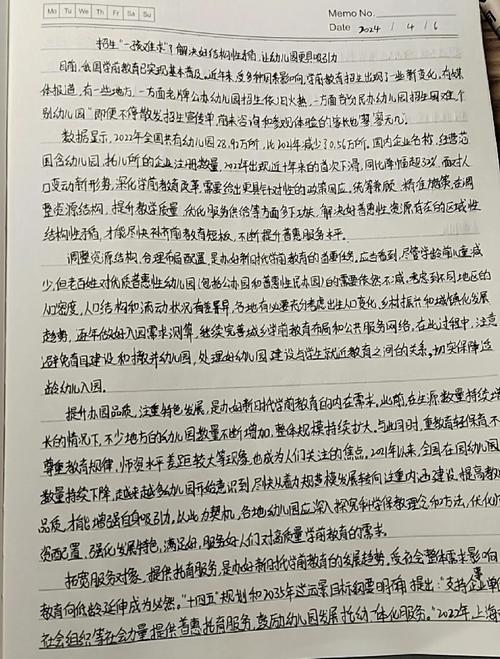 Mo Tu We Th Fr Sa Su
Memo No.
Date 2024 / 4 / 6
招生"一孩难求"?解决好结构性矛盾,让幼儿园更具吸引力
目前,我国学前教育已实现基本普及。近年来,受多种因素影响,学前教育招生出现了一些新变化,有媒
体报道,有一些地方,一方面老牌公办幼儿园招生依旧火热,一方面部分民办幼儿园招生困难,个
别幼儿园"即便不停散发招生宣传单,前来咨询和参观体验的家长也寥寥无几"。
数据显示,2022年全国共有幼儿园28.92万所,比2021年减少了0.56万所,国内企业名称、经营范
围含幼儿园、托儿所的企业注册数量,2022年出现近十年来的首次下滑,同比降幅超32%。面对人
口变动新形势,深化学前教育改革,需要给出更具针对性的政策回应,统筹兼顾、精准施策,在调
整资源结构、提升教学质量、优化服务供给等方面多下功夫,解决好普惠性资源存在的区域性
结构性矛盾,才能尽快补齐学前教育短板,不断提升普惠服务水平。
调整资源结构、合理布局配置,是办好新时代学前教育的首要任务。应当看到,尽管学龄前儿童减
少,但老百姓对优质普惠性幼儿园(包括公办园和普惠性民办园)的需要依然不减。考虑到不同地区的
人口密度、人口结构和流动状况有差异,各地有必要充分考虑出生人口变化、乡村振兴和城镇化发展
趋势,逐年做好入园需求测算,继续完善城乡学前教育布局和公共服务网络。在此过程中,注意
避免盲目建设和撤并幼儿园,处理好幼儿园建设与学生就近教育之间的关系,切实保障适
龄幼儿入园。
提升办园品质、注重特色发展,是办好新时代学前教育的内在需求。此前,在生源数量持续增
长的情况下,不少地方的幼儿园数量不断增加,整体规模持续扩大。与此同时,重教育轻保育、不
尊重教育规律、师资水平差距较大等现象,也成为人们关注的焦点。2021年以来,全国在园幼儿园
数量持续下降,越来越多幼儿园开始意识到,尽快从着力规模发展转向注重内涵建设、提高教育
品质,才能增强自身吸引力。以此为契机,各地幼儿园应深入探究科学保教理念和方法,优化师
资配置,强化发展特色,满足好、服务好人们对高质量学前教育的需求。
拓宽服务对象、提供托育服务,是办好新时代学前教育的发展趋势。受社会整体需求影响,
教育向低龄延伸成为必然。"十四五"规划和2035年远景目标纲要明确提出:"支持企业单
社会组织等社会力量提供普惠托育服务,鼓励幼儿园发展托幼一体化服务。"2022年,上海